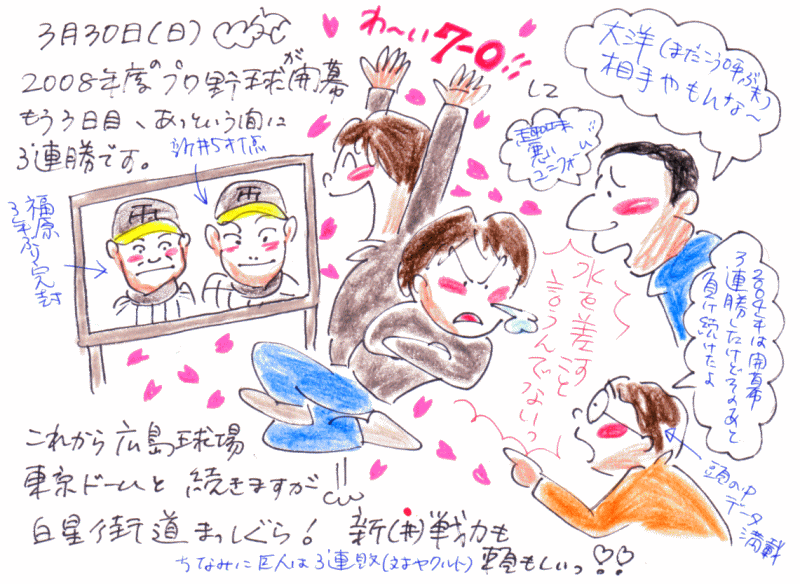 3月30日(日)
2008年度のプロ野球が開幕
もう3日目、あっという間に
3連勝です。
新井5打点
福原
3年ぶり完封
わ〜い7-0!!
して
大洋(まだこう呼ぶ夫)
相手やもんな〜
趣味
悪い
ユニフォーム
水を差す
こと
言うんでないっ
2004年は開幕
3連勝したけどそのあと
負け続けたよ
頭の中
データ
満載
これから広島球場
東京ドームと続きますが
白星街道まっしぐら! 新(井)戦力も
頼もしいっ♡♡!!
ちなみに巨人は3連敗(対ヤクルト)